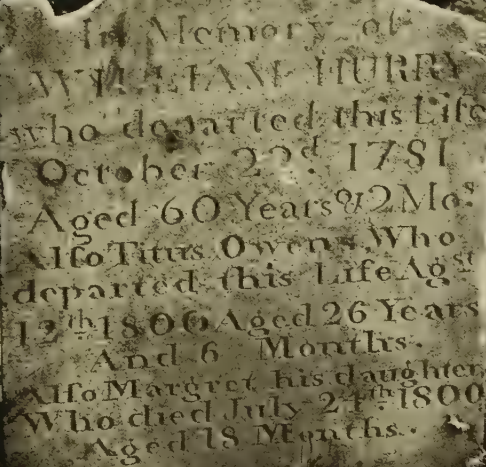 In Memory of
WILLIAM HURRY
who departed this Life
October 22d. 1781
Aged 60 Years & 2 Mos.
Alſo Titus Owens, Who
departed this Life Agst
12th 1806 Aged 26 Years
And 6 Months.
Alſo Margret his daughter
Who died July 24th 1800
Aged 18 Months.